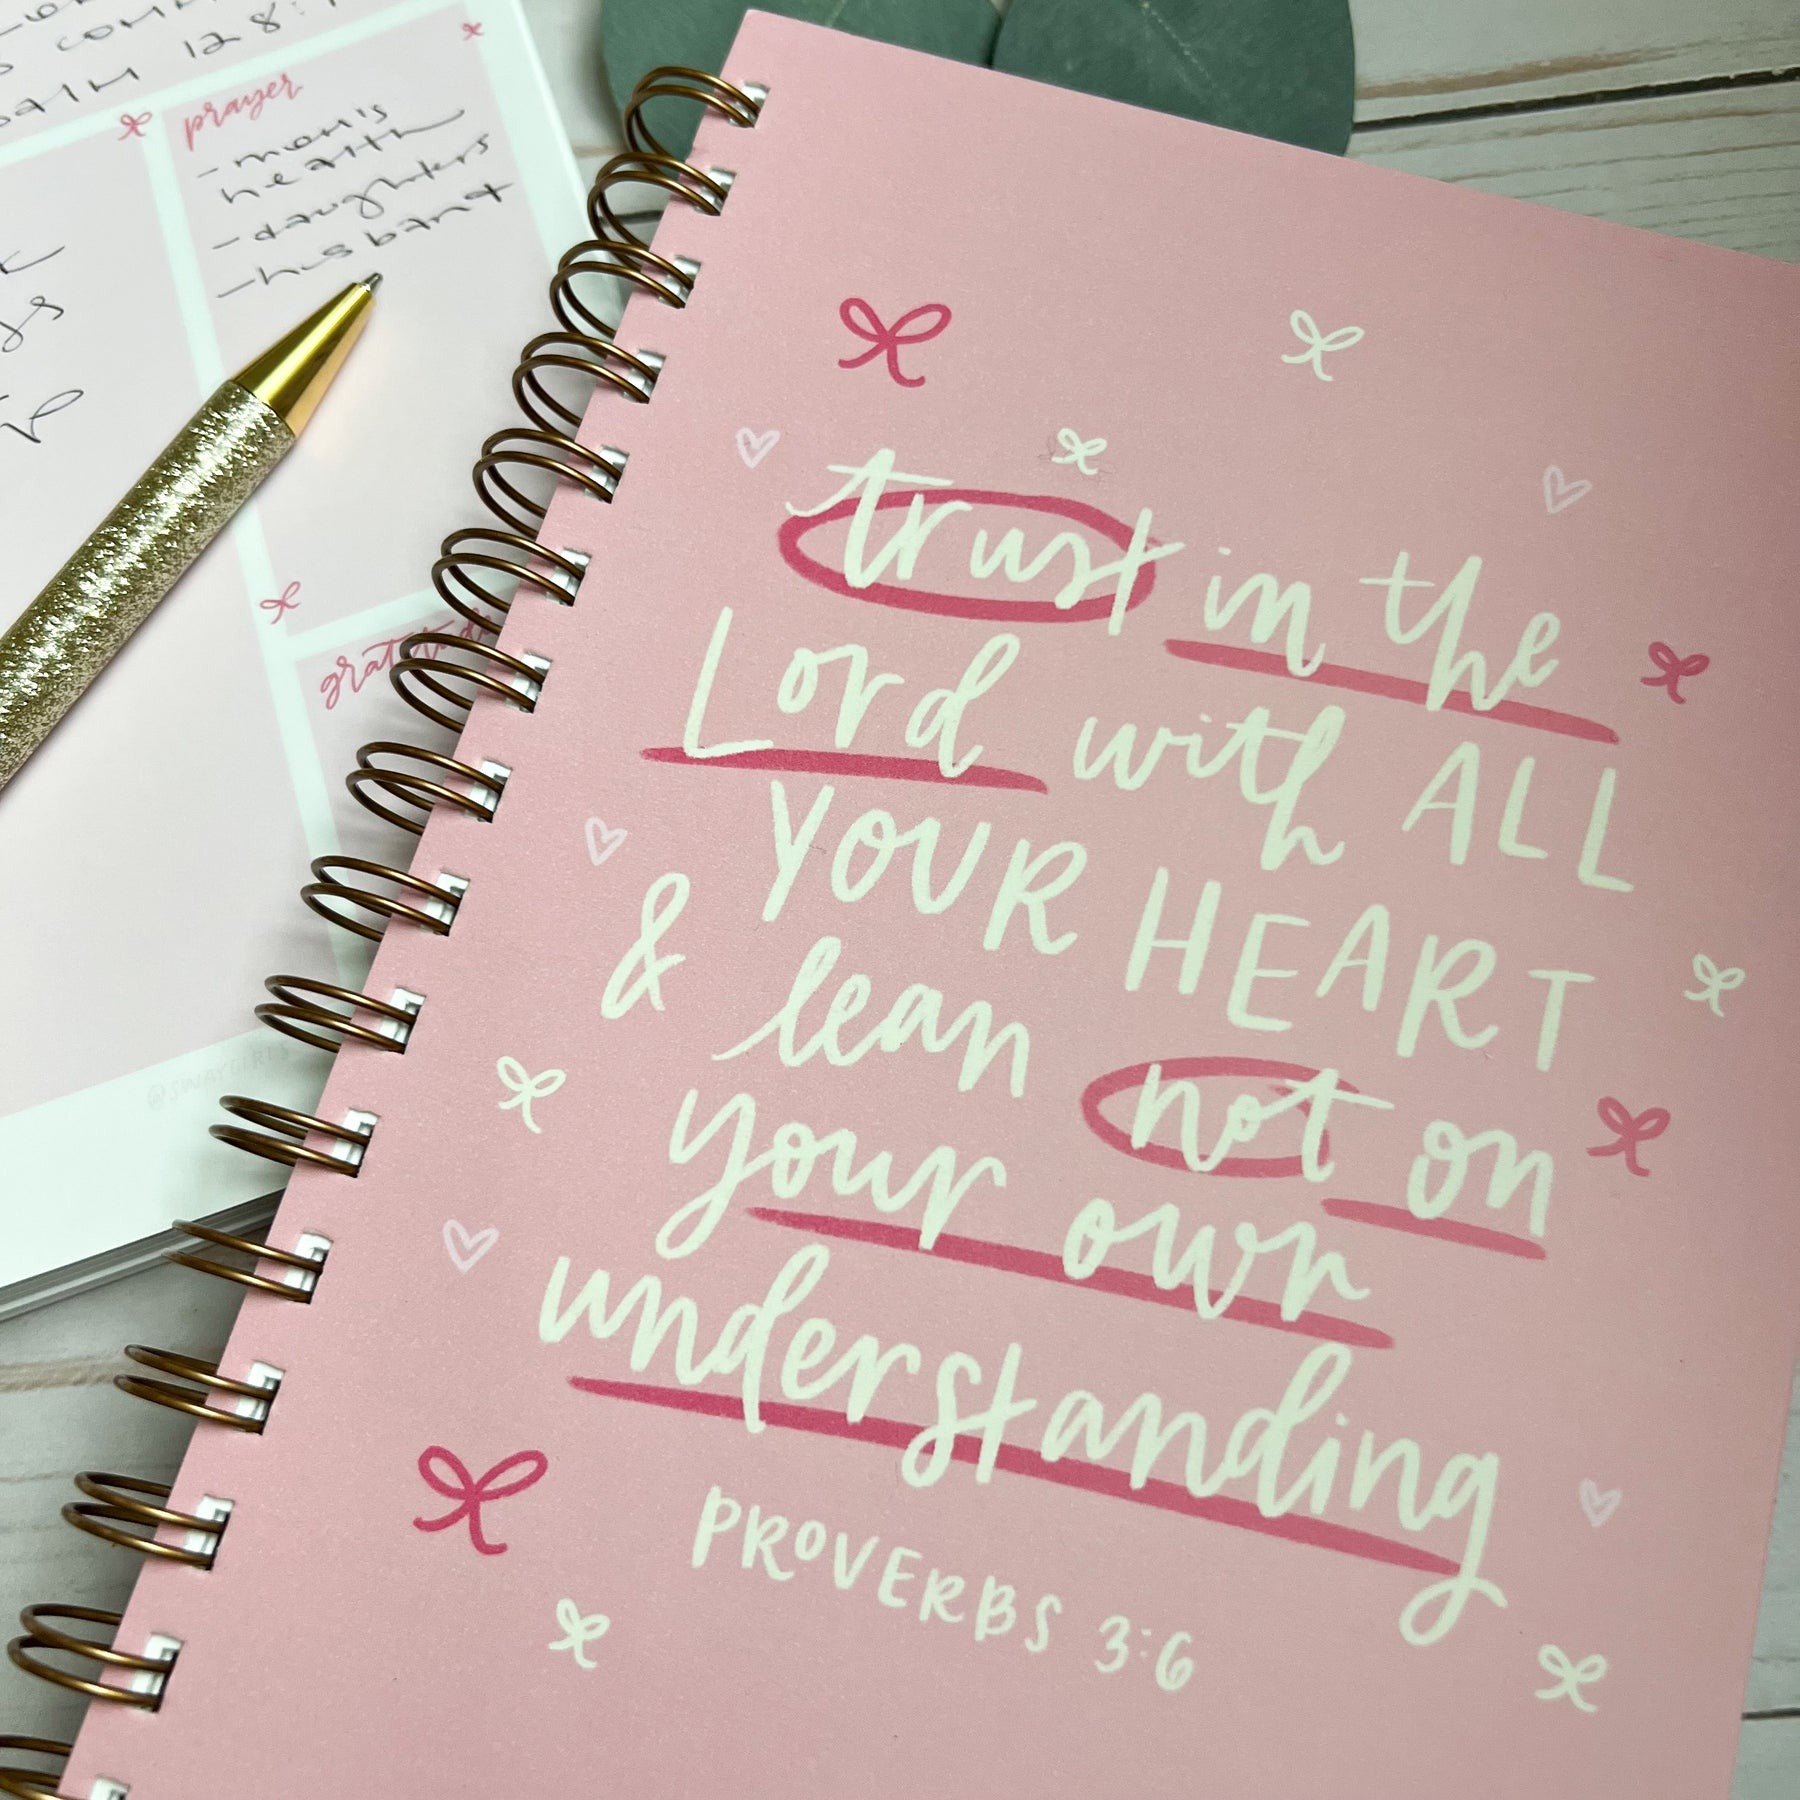 128:1
prayer
- mom's
health
- daughters
- husband
@SWAYGIRLS
trust in the
Lord with ALL
YOUR HEART
& lean not on
your own
understanding
PROVERBS 3:6